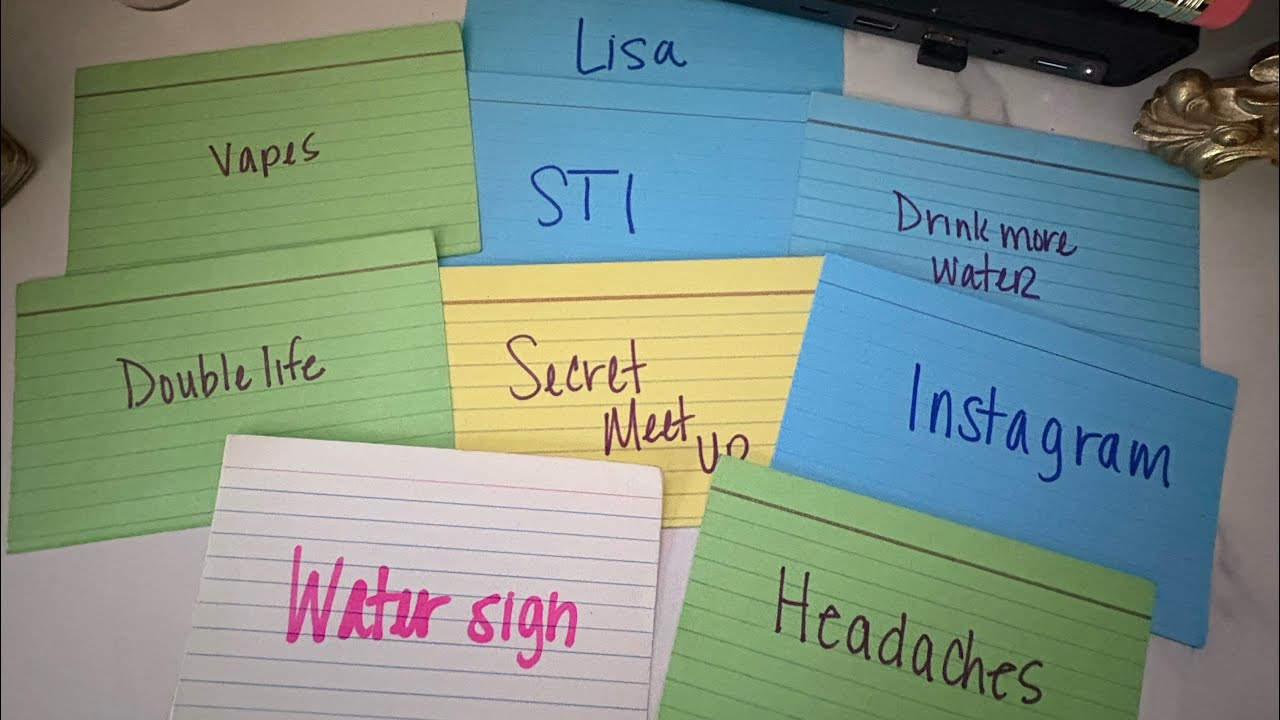 Lisa
Vapes
STI
Drink more
Water
Double life
Secret
Meet
Up
Instagram
Water sign
Headaches